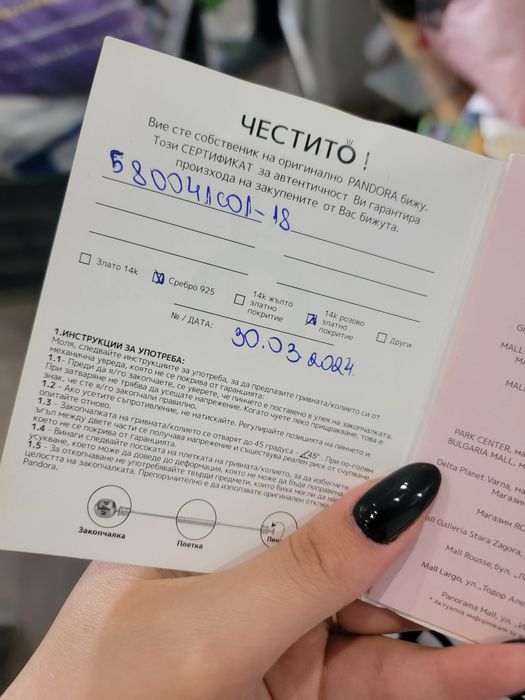 ЧЕСТИТО!
Вие сте собственик на оригинално PANDORA бижу.
Този СЕРТИФИКАТ за автентичност Ви гарантира
произхода на закупените от Вас бижута.
580041C01-18
Злато 14k
Сребро 925
14k жълто златно покритие
14k розово златно покритие
Други
№ / ДАТА:
30.03.2024
1.ИНСТРУКЦИИ ЗА УПОТРЕБА:
Моля, следвайте инструкциите за употреба, за да предпазите гривната/колието си от
механична увреда, която не се покрива от гаранцията:
1.1 - Преди да я/го закопчаете, се уверете, че пинчето е поставено в улея на закопчалката.
При затваряне не трябва да усещате напрежение. Когато чуете леко прищракване, това е
знак, че сте я/го закопчали правилно.
1.2 - Ако усетите съпротивление, не натискайте. Регулирайте позицията на пинчето и
опитайте отново.
1.3 - Закопчалката на гривната/колието се отварят до 45 градуса - 45°. При по-голям
ъгъл между двете части се получава напрежение и съществува реален риск от счупване,
което не се покрива от гаранцията
1.4 - Винаги следвайте посоката на плетката на гривната/колието, за да избегнете
усукване, което може да доведе до деформация, която не може да бъде поправена.
1.5 - За откопчаване не употребявайте твърди предмети, които биха могли да на
целостта на закопчалката. Препоръчително е да използвате оригинален отключ
Pandora.
Закопчалка
Плетка
Пин
MALL
MALL
PARK CENTER,
BULGARIA MALL,
Delta Planet Varna,
Магазин
Магазин
all Galleria Stara Zagora,
Mall Rousse, бул.
Mall Largo, ул. „Тодор
Panorama Mall, ул.
* Актуална информация за